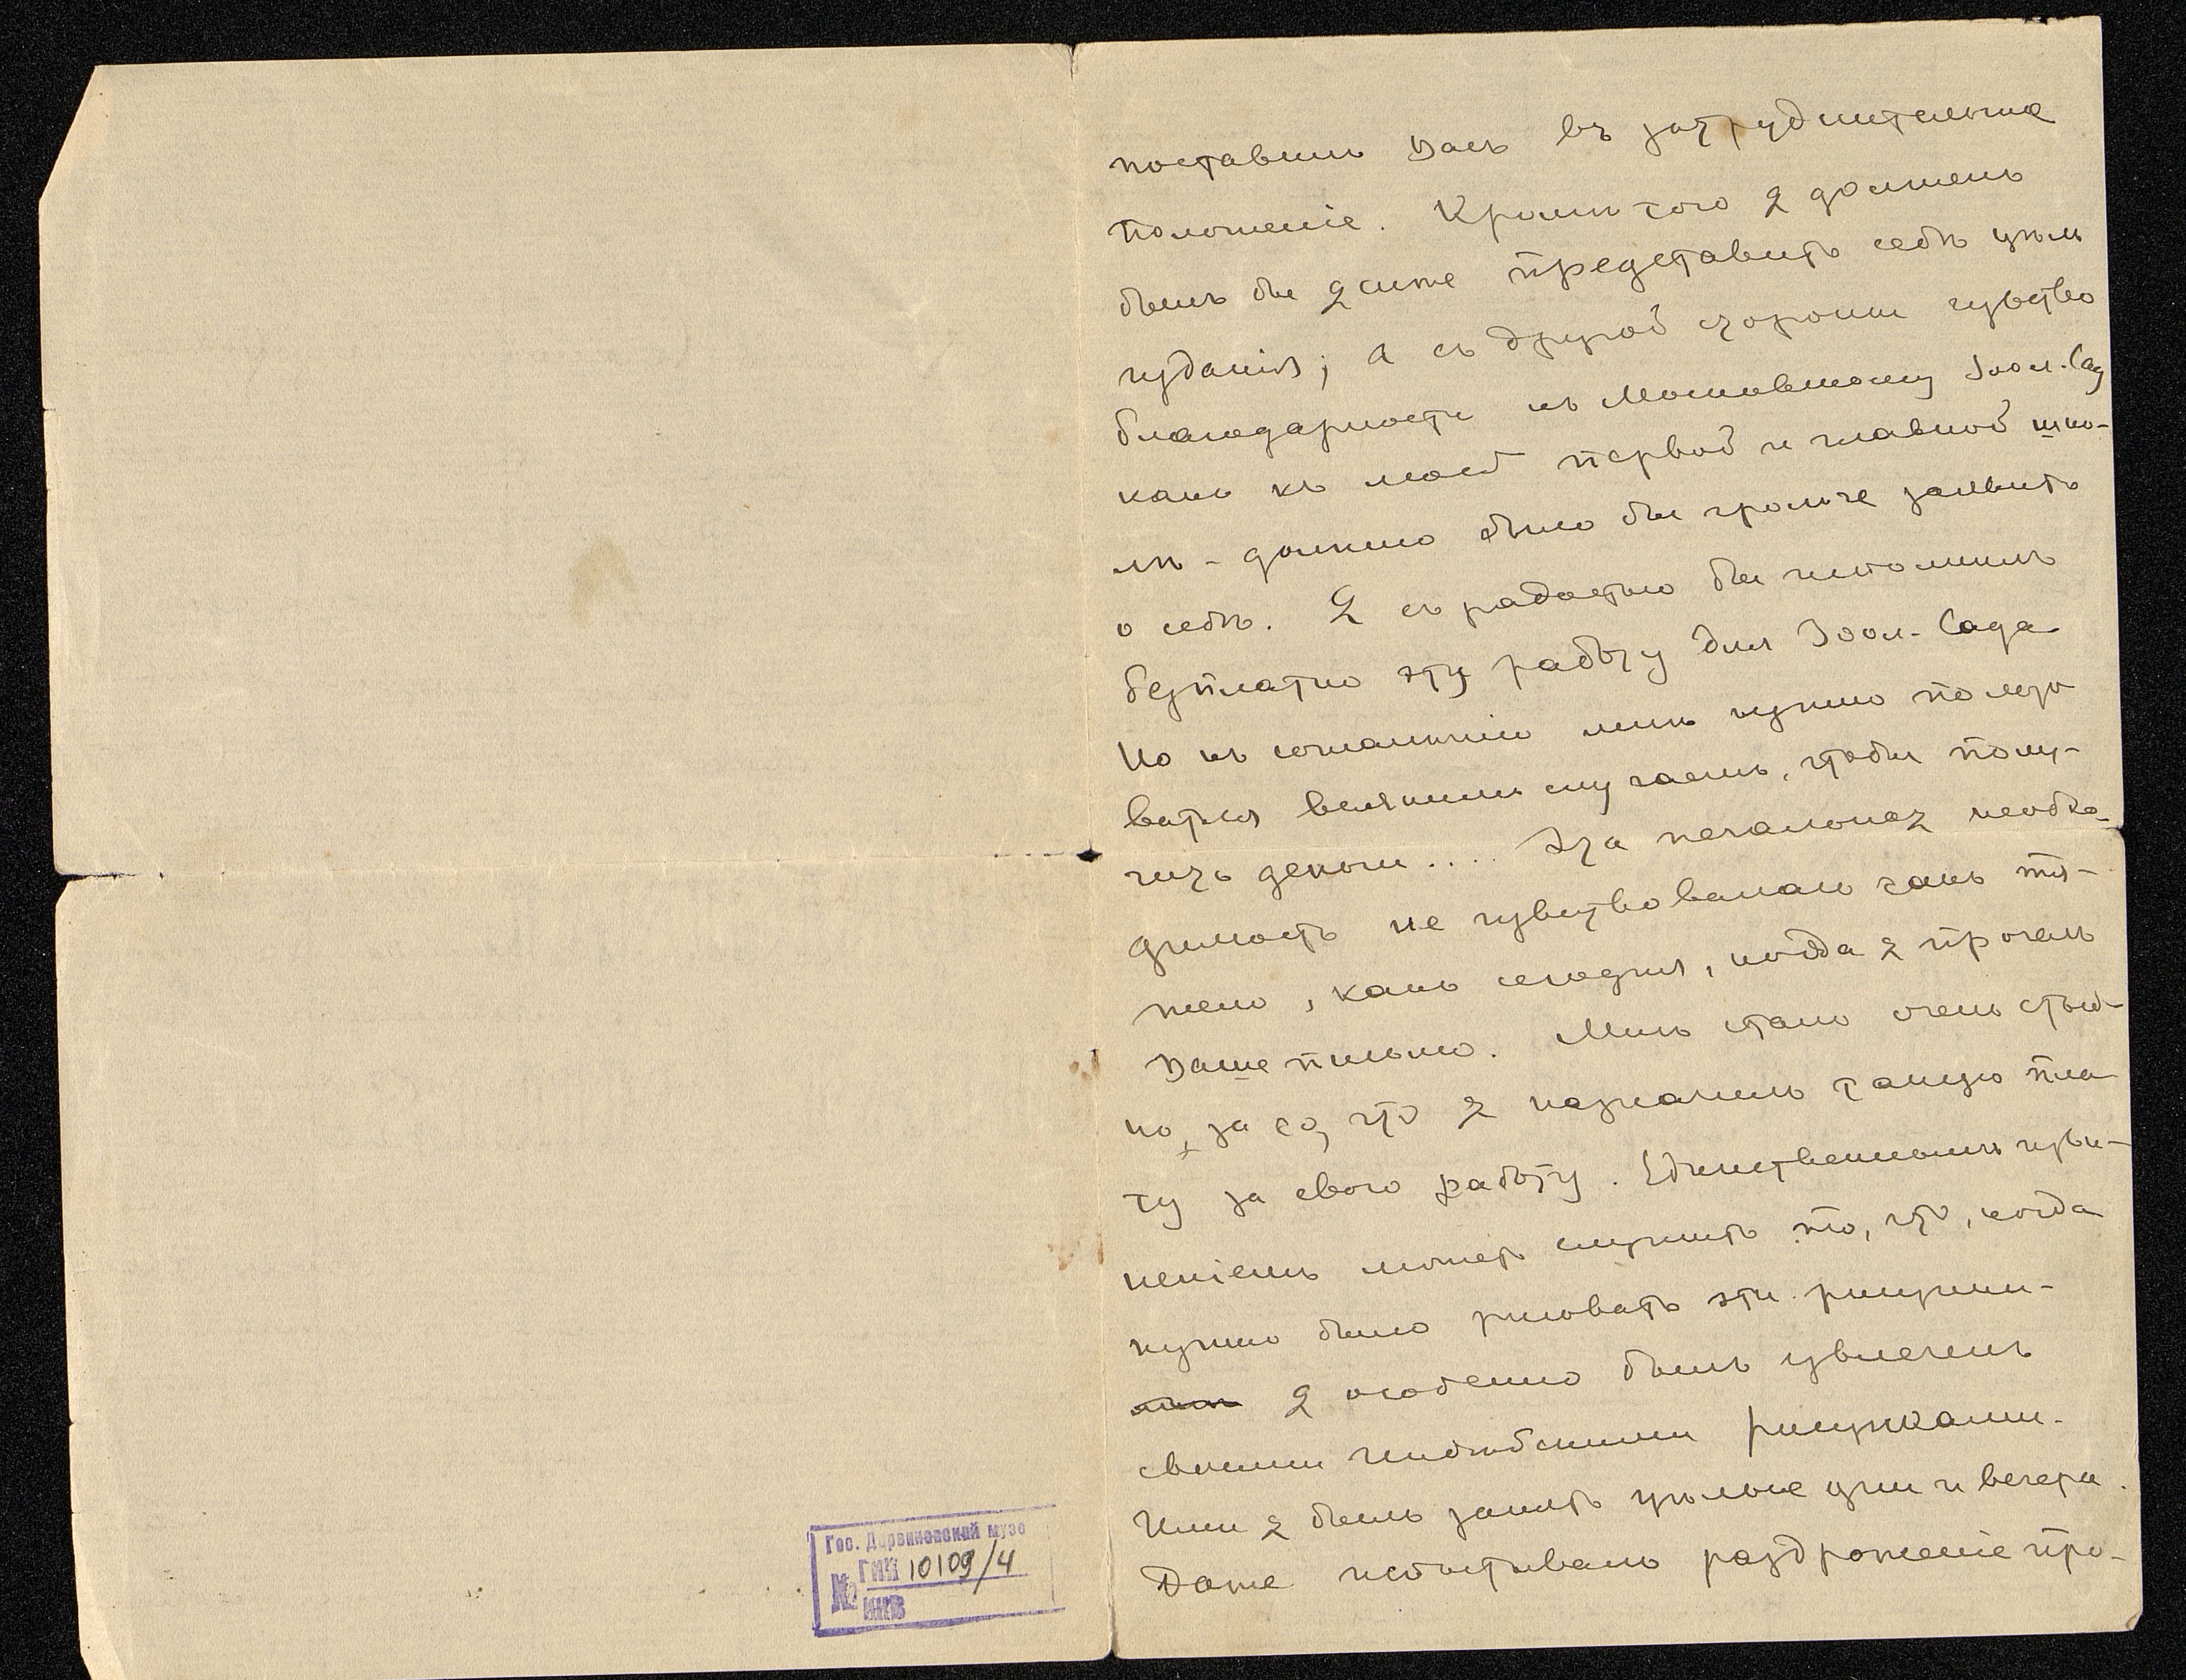 поставилъ Васъ въ затруднительное
положеніе. Кромѣ того я долженъ
былъ бы яснѣе представить себѣ цѣль
изданія; а съ другой стороны чувство
благодарности къ Московскому Зоол. Саду
какъ къ моей первой и главной шко-
лѣ - должно было бы громче заявить
о себѣ. Я съ радостью бы исполнилъ
безплатно эту работу для Зоол. Сада
Но къ сожалѣнію мнѣ нужно пользо
ваться всякимъ случаемъ, чтобы полу-
чить деньги.... Эта печальная необхо-
димость не чувствовалась такъ тя-
жело, какъ сегодня, когда я прочелъ
Ваше письмо. Мнѣ стало очень стыд-
но, за то, что я назначилъ такую пла
ту за свою работу. Единственнымъ изви-
неніемъ можетъ служить то, что, когда
нужно было рисовать эти рисунки -
я особенно былъ увлеченъ
своими индѣйскими рисунками.
Ими я былъ занятъ цѣлые дни и вечера.
Даже испытывалъ раздроженіе про-
Гос. Дарвиновский музе
№ ГМК 10109/4
ИНВ